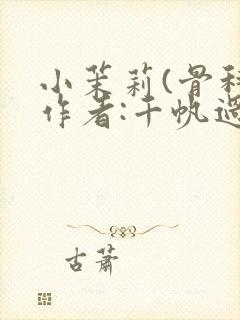 小茉莉(骨科
作者:千帆过
古萧